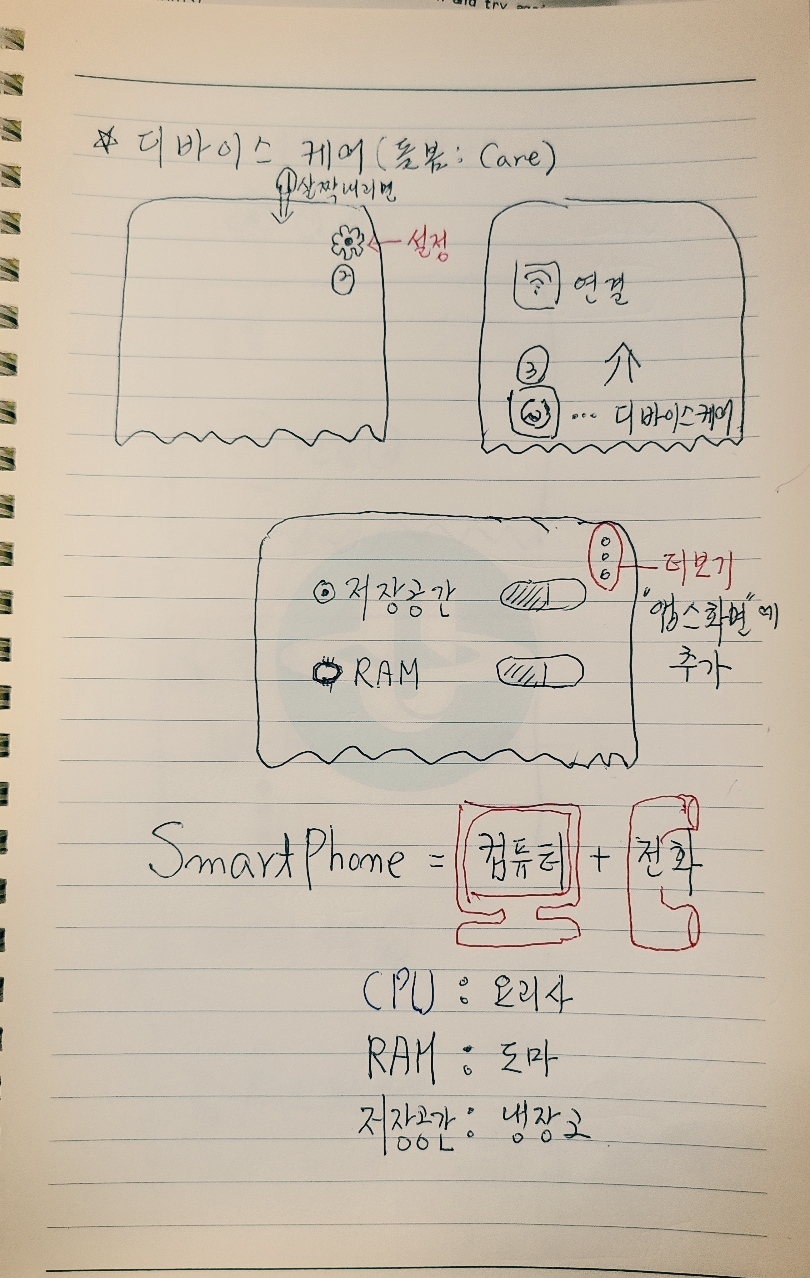 ☆ 디바이스 케어(돌봄: Care)
① 살짝내리면
설정
②
연결
③
... 디바이스케어
저장공간
더보기
"앱스화면"에
추가
RAM
SmartPhone = 컴퓨터 + 전화
CPU : 요리사
RAM : 도마
저장공간 : 냉장고